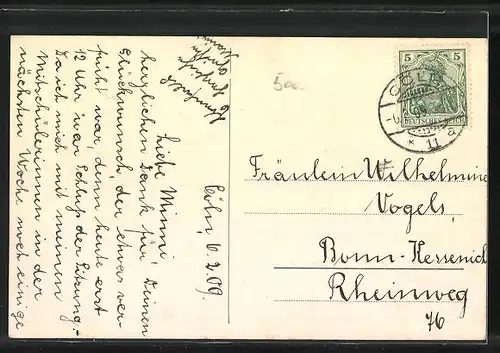 Cöln, 6.2.09.
Liebe Minni,
herzlichen Dank für Deinen
Glückwunsch der etwas ver-
früht war, denn heute erst
12 Uhr war Schluß der Sitzung.
Da ich mich mit meinen
Mitschülerinnen in der
nächsten Woche noch einige
5a
5 5
CÖLN
DEUTSCHES REICH
* 11 a
Fräulein Wilhelmine
Vogels,
Bonn-Kessenich
Rheinweg
76